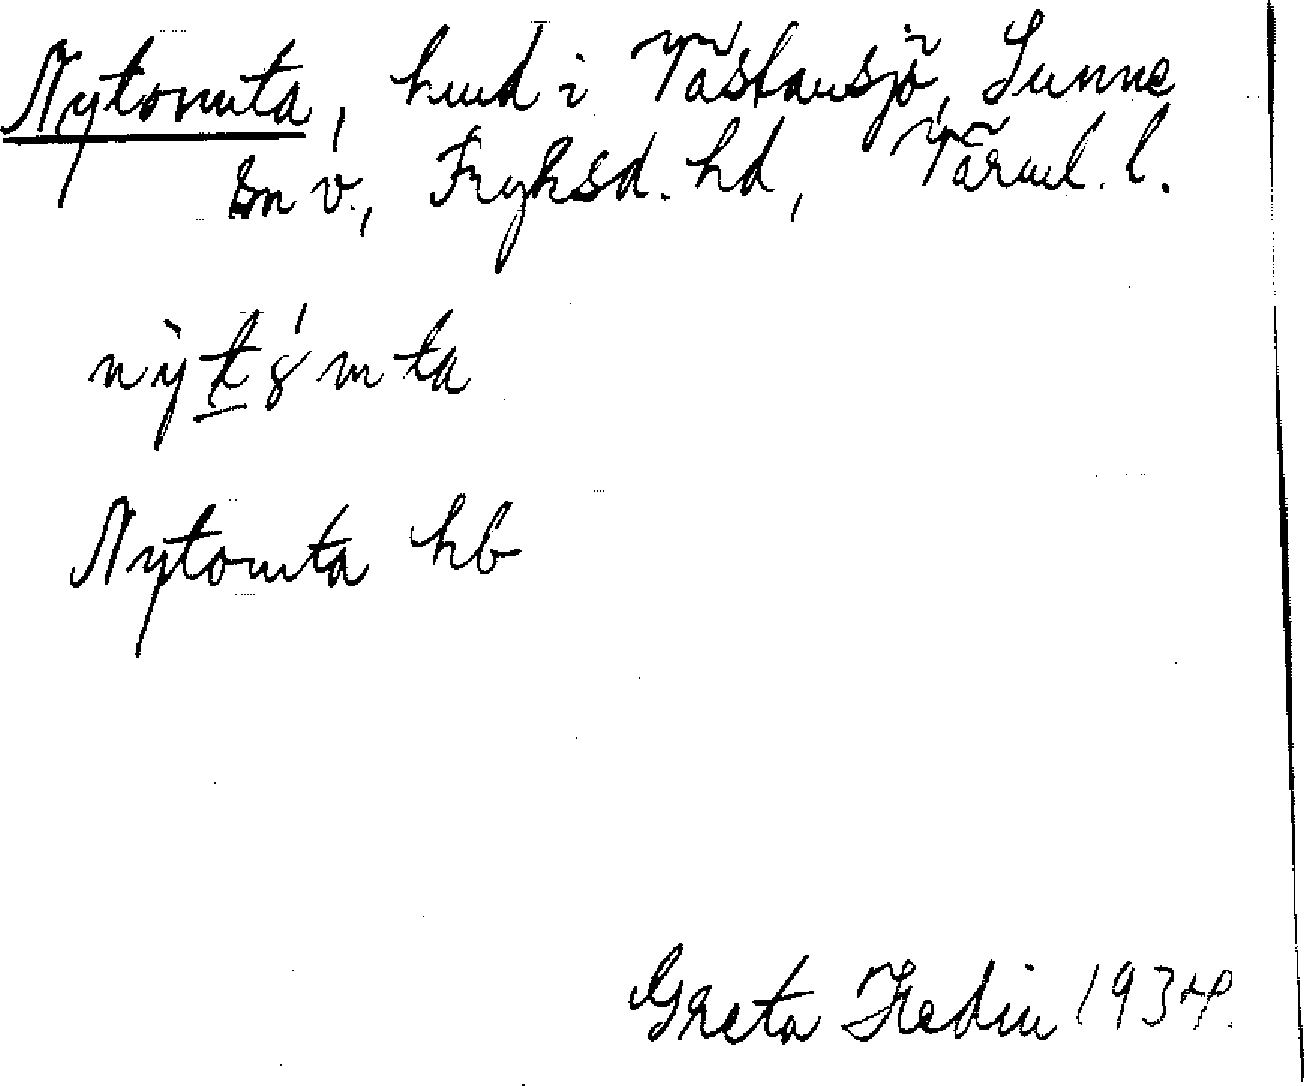 Nytomta, hmd i Västansjö, Sunne
sn v., Fryksd. hd, Värml. l.
nỳtǒ́mta
Nytomta hb
Greta Hedin 1934.